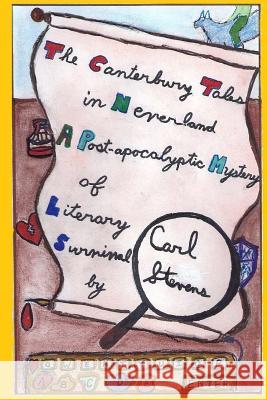 The Canterbury Tales
in Neverland
A Post-apocalyptic Mystery
of
Literary
Survival
by
Carl
Stevens